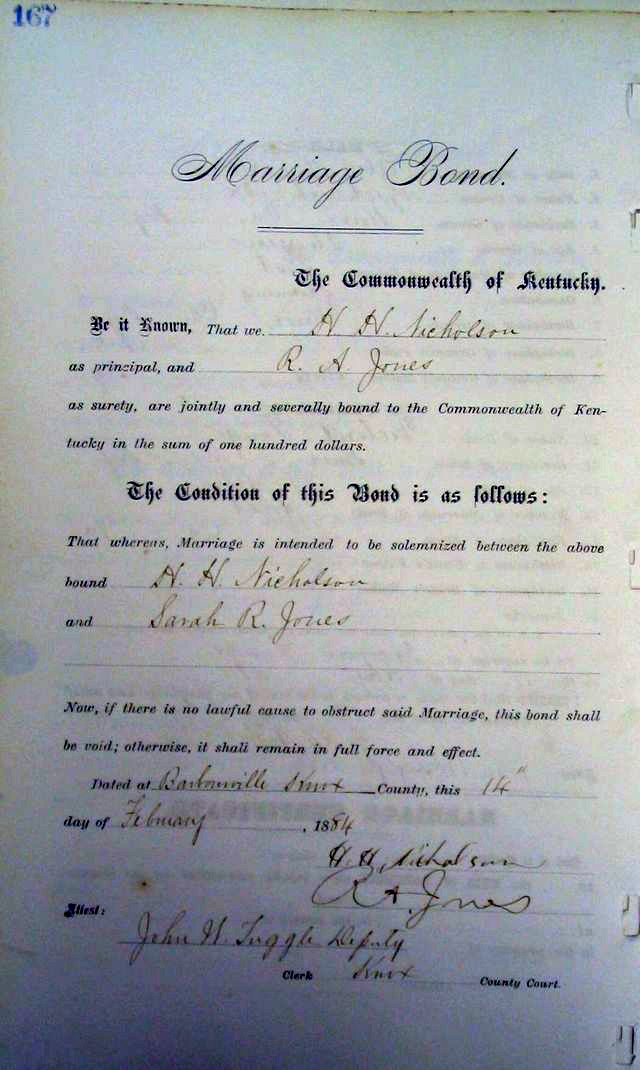 167
Marriage Bond.
The Commonwealth of Kentucky.
Be it Known, That we H. H. Nicholson
as principal, and R. A. Jones
as surety, are jointly and severally bound to the Commonwealth of Ken-
tucky in the sum of one hundred dollars.
The Condition of this Bond is as follows:
That whereas, Marriage is intended to be solemnized between the above
bound H. H. Nicholson
and Sarah R. Jones
Now, if there is no lawful cause to obstruct said Marriage, this bond shall
be void; otherwise, it shall remain in full force and effect.
Dated at Barbourville Knox County, this 14"
day of February, 1884
H. H. Nicholson
R. A. Jones
Attest:
John H. Tuggle Deputy
Clerk Knox County Court.